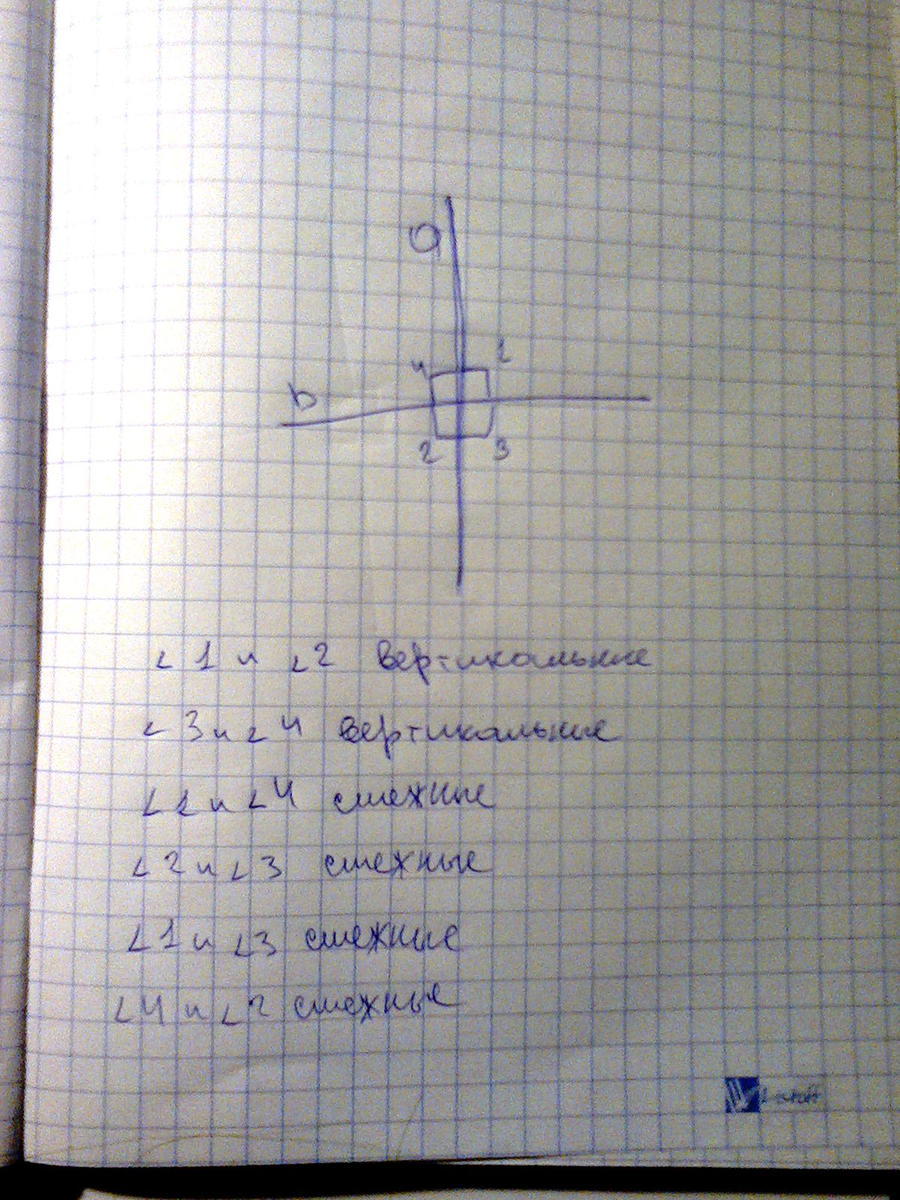 a
4 1
b
2 3
∠1 и ∠2 вертикальные
∠3 и ∠4 вертикальные
∠1 и ∠4 смежные
∠2 и ∠3 смежные
∠1 и ∠3 смежные
∠4 и ∠2 смежные